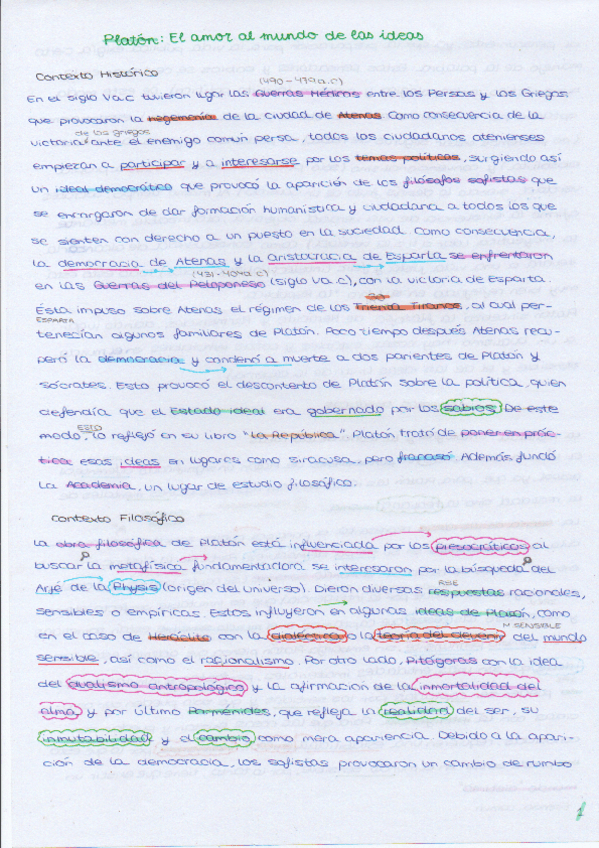 Platón: El amor al mundo de las ideas
Contexto Histórico
(490-479 a.C)
En el siglo V a.C tuvieron lugar las Guerras Médicas entre los Persas y los Griegos
que provocaron la hegemonía de la ciudad de Atenas. Como consecuencia de la
de los griegos
victoria ante el enemigo común persa, todos los ciudadanos atenienses
empiezan a participar y a interesarse por los temas políticos, surgiendo así
un ideal democrático que provocó la aparición de los filósofos sofistas que
se encargaron de dar formación humanística y ciudadana a todos los que
se sienten con derecho a un puesto en la sociedad. Como consecuencia,
la democracia de Atenas y la aristocracia de Esparta se enfrentaron
(431-404 a.C)
en las Guerras del Peloponeso (siglo V a.C), con la victoria de Esparta.
Ésta impuso sobre Atenas el régimen de los Treinta Tiranos, al cual per-
ESPARTA
tenecían algunos familiares de Platón. Poco tiempo después Atenas recu-
peró la democracia y condenó a muerte a dos parientes de Platón y
Sócrates. Esto provocó el descontento de Platón sobre la política, quien
defendía que el Estado ideal era gobernado por los sabios. De este
ESTO
modo, lo reflejó en su libro "La República". Platón trató de poner en prác-
tica esas ideas en lugares como Siracusa, pero fracasó. Además fundó
la Academia, un lugar de estudio filosófico.
Contexto Filosófico
La obra filosófica de Platón está influenciada por los presocráticos al
buscar la metafísica fundamentadora se interesaron por la búsqueda del
Arjé de la Physis (origen del universo). Dieron diversas respuestas racionales,
sensibles o empíricas. Estos influyeron en algunas ideas de Platón, como
M SENSIBLE
en el caso de Heráclito con la dialéctica o la teoría del devenir del mundo
sensible, así como el racionalismo. Por otro lado, Pitágoras con la idea
del dualismo antropológico y la afirmación de la inmortalidad del
alma y por último Parménides, que refleja la realidad del ser, su
inmutabilidad y el cambio como mera apariencia. Debido a la apari-
ción de la democracia, los sofistas provocaron un cambio de rumbo
1